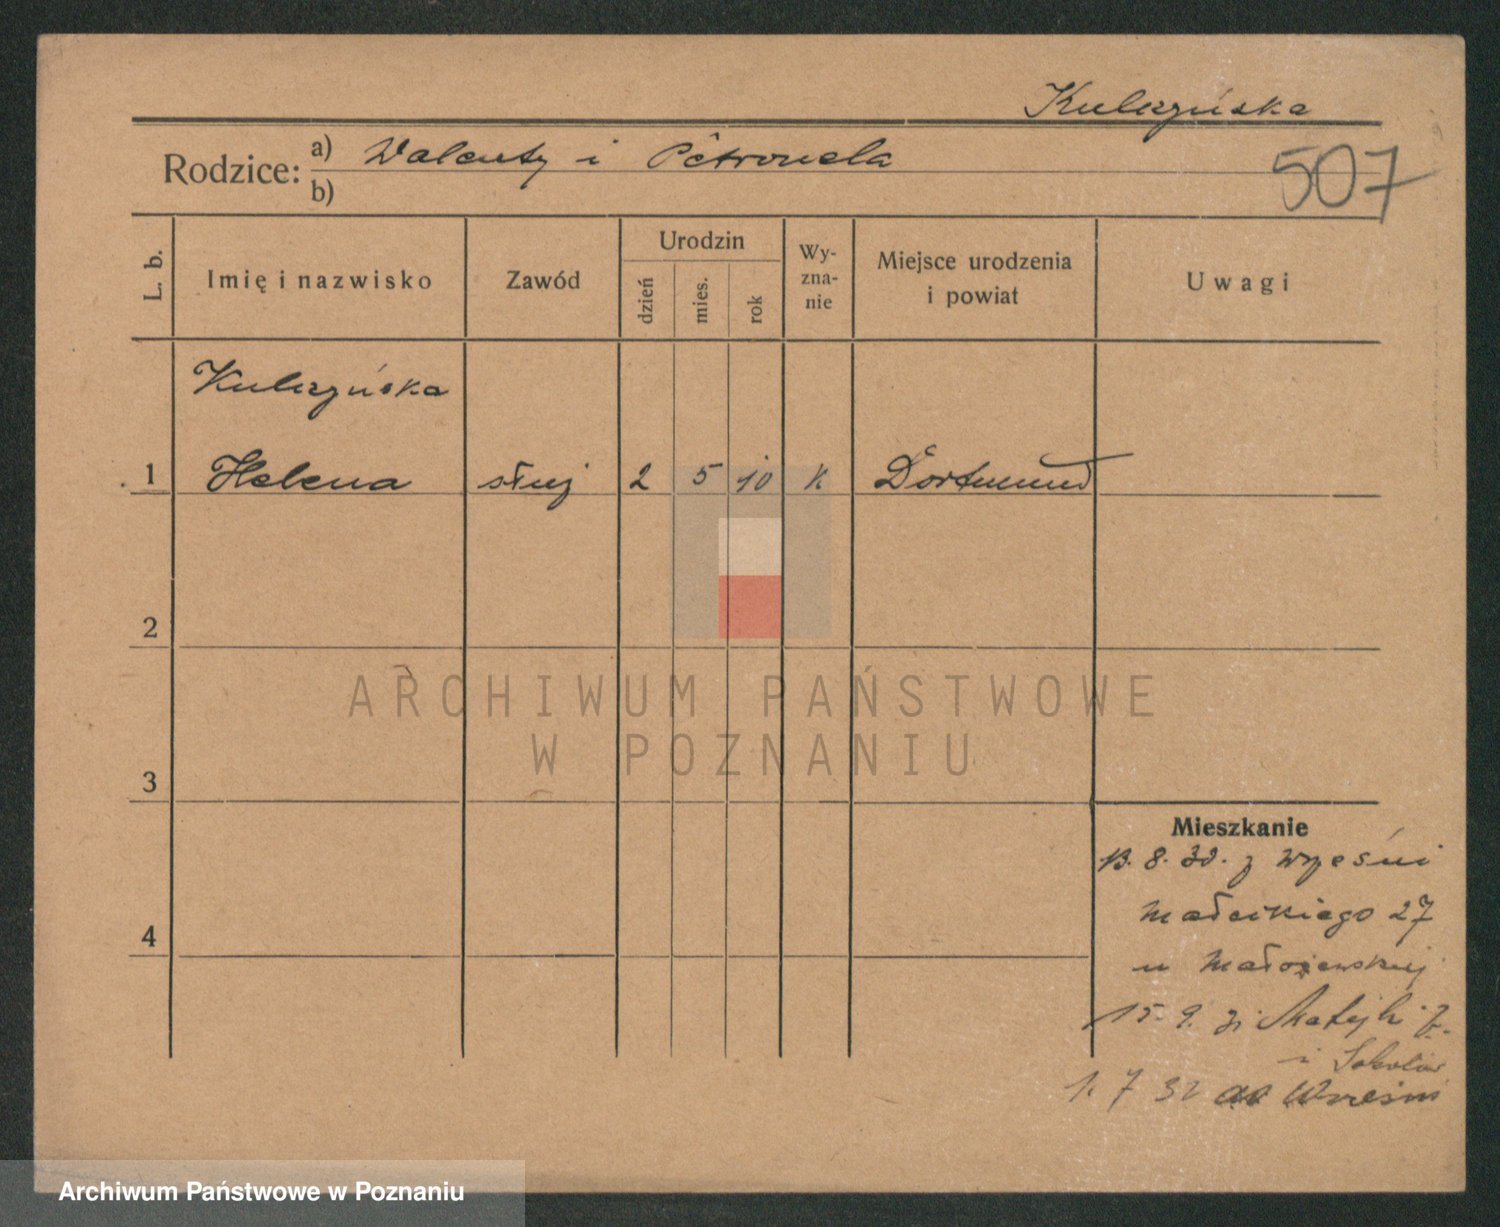 Kulczyńska
Rodzice: a) Walenty i Petronela
b)
507
L. b.
Imię i nazwisko
Zawód
Urodzin
dzień
mies.
rok
Wy-
zna-
nie
Miejsce urodzenia
i powiat
Uwagi
Kulczyńska
1 Helena służ 2 5 10 k Dortmund
2
3
4
Mieszkanie
13. 8. 30. z Wrześni
Małeckiego 27
u
15. 9. 31 Matejki
1. 7 32 do Wrześni
ARCHIWUM PAŃSTWOWE
W POZNANIU
Archiwum Państwowe w Poznaniu